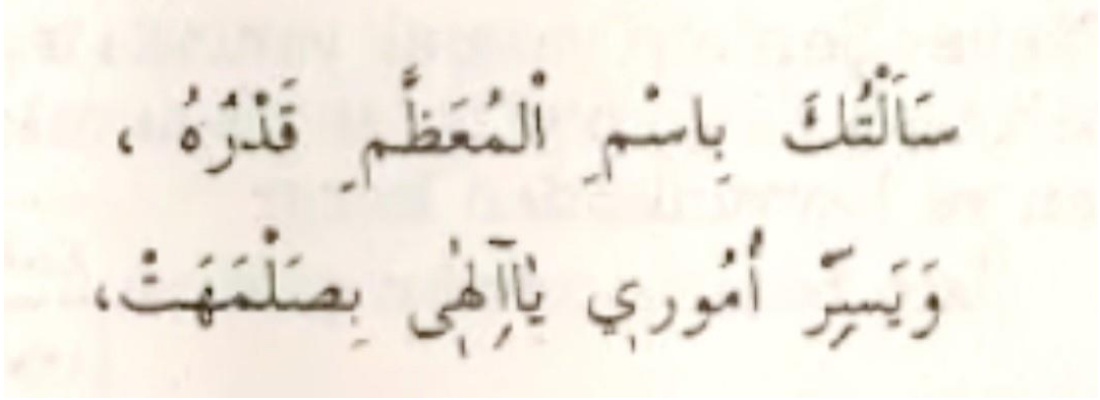 سَاَلْتُكَ بِاسْمِ اْلمُعَظَّمِ قَدْرُهُ ،
وَيَسِّرْ أُمُورِي يَاآِلٰهِى بِصَلْمَهَتْ،